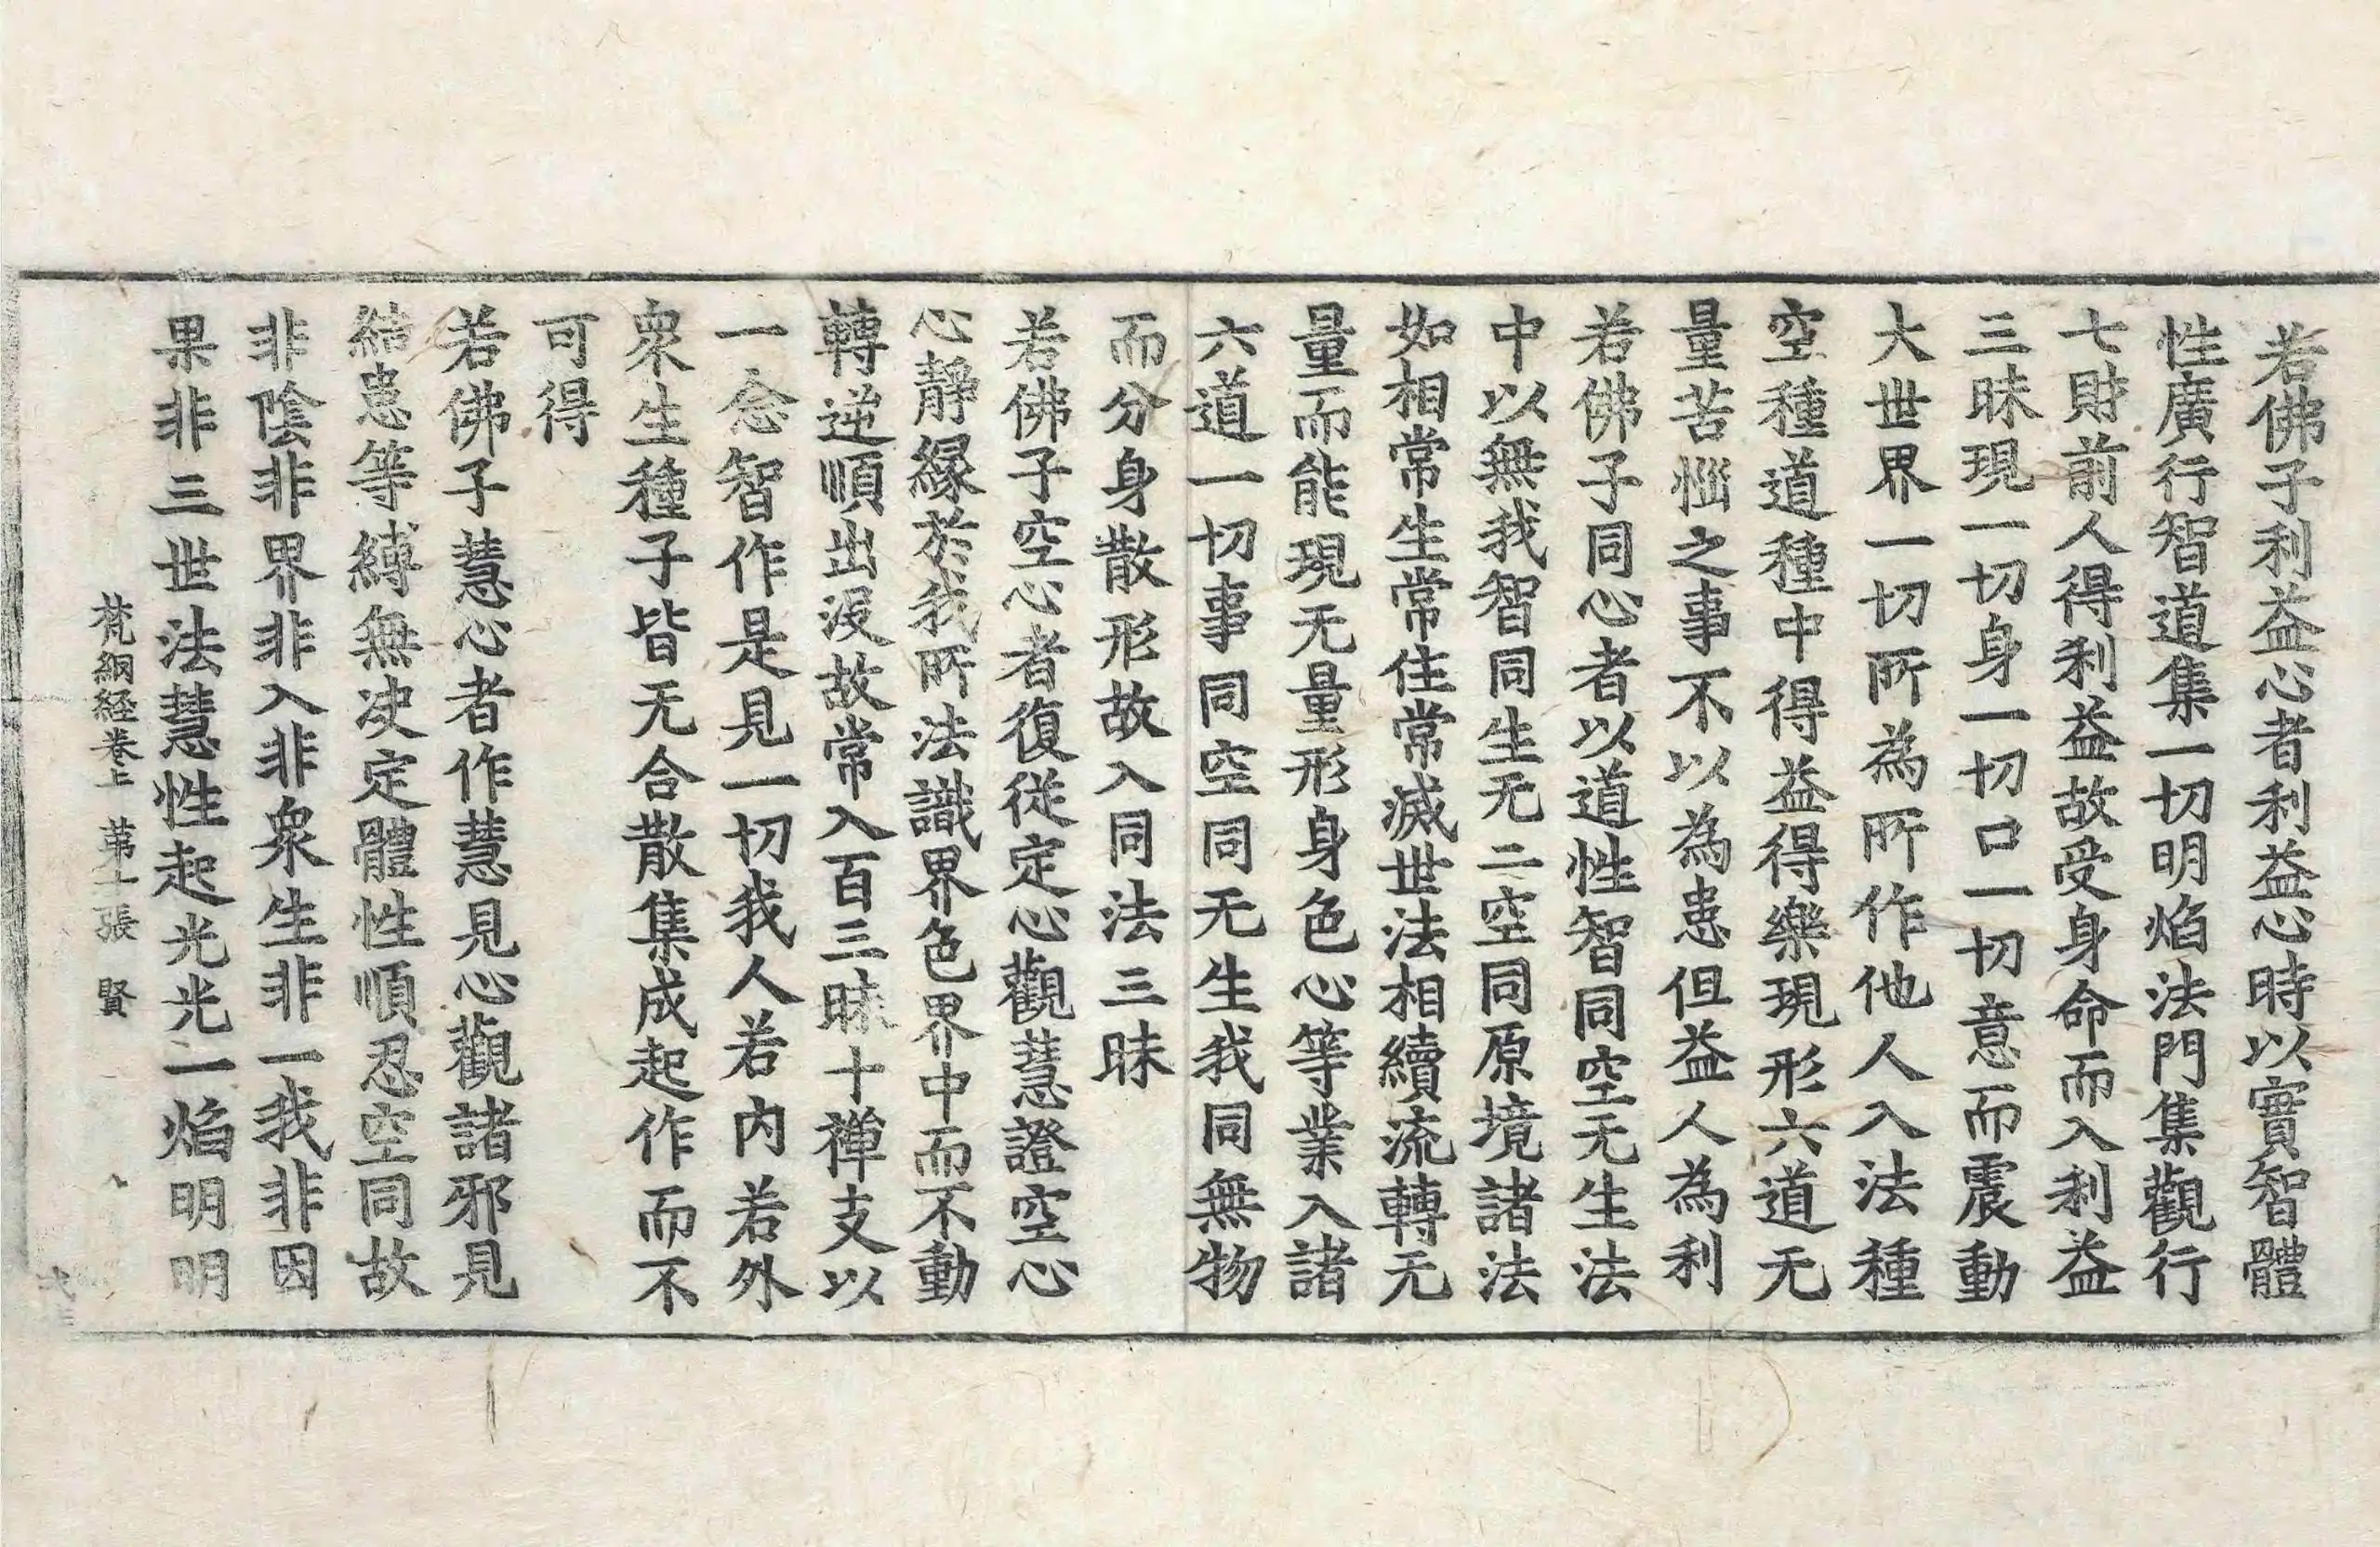 若佛子利益心者利益心時以實智體
性廣行智道集一切明焰法門集觀行
七財前人得利益故受身命而入利益
三昧現一切身一切口一切意而震動
大世界一切所為所作他人入法種
空種道種中得益得樂現形六道无
量苦惱之事不以為患但益人為利
若佛子同心者以道性智同空无生法
中以無我智同生无二空同原境諸法
如相常生常住常滅世法相續流轉无
量而能現无量形身色心等業入諸
六道一切事同空同无生我同無物
而分身散形故入同法三昧
若佛子空心者復從定心觀慧證空心
心靜緣於我所法識界色界中而不動
轉逆順出沒故常入百三昧十禪支以
一念智作是見一切我人若內若外
衆生種子皆无合散集成起作而不
可得
若佛子慧心者作慧見心觀諸邪見
結患等縛無决定體性順忍空同故
非陰非界非入非衆生非一我非因
果非三世法慧性起光光一焰明明
梵網経卷上 苐十張 賢